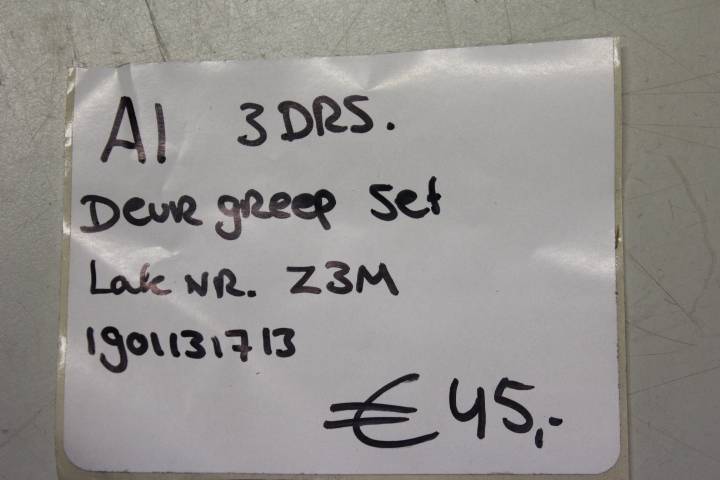 A1 3DRS.
Deur greep set
Lak NR. Z3M
1901131713
€ 45,-